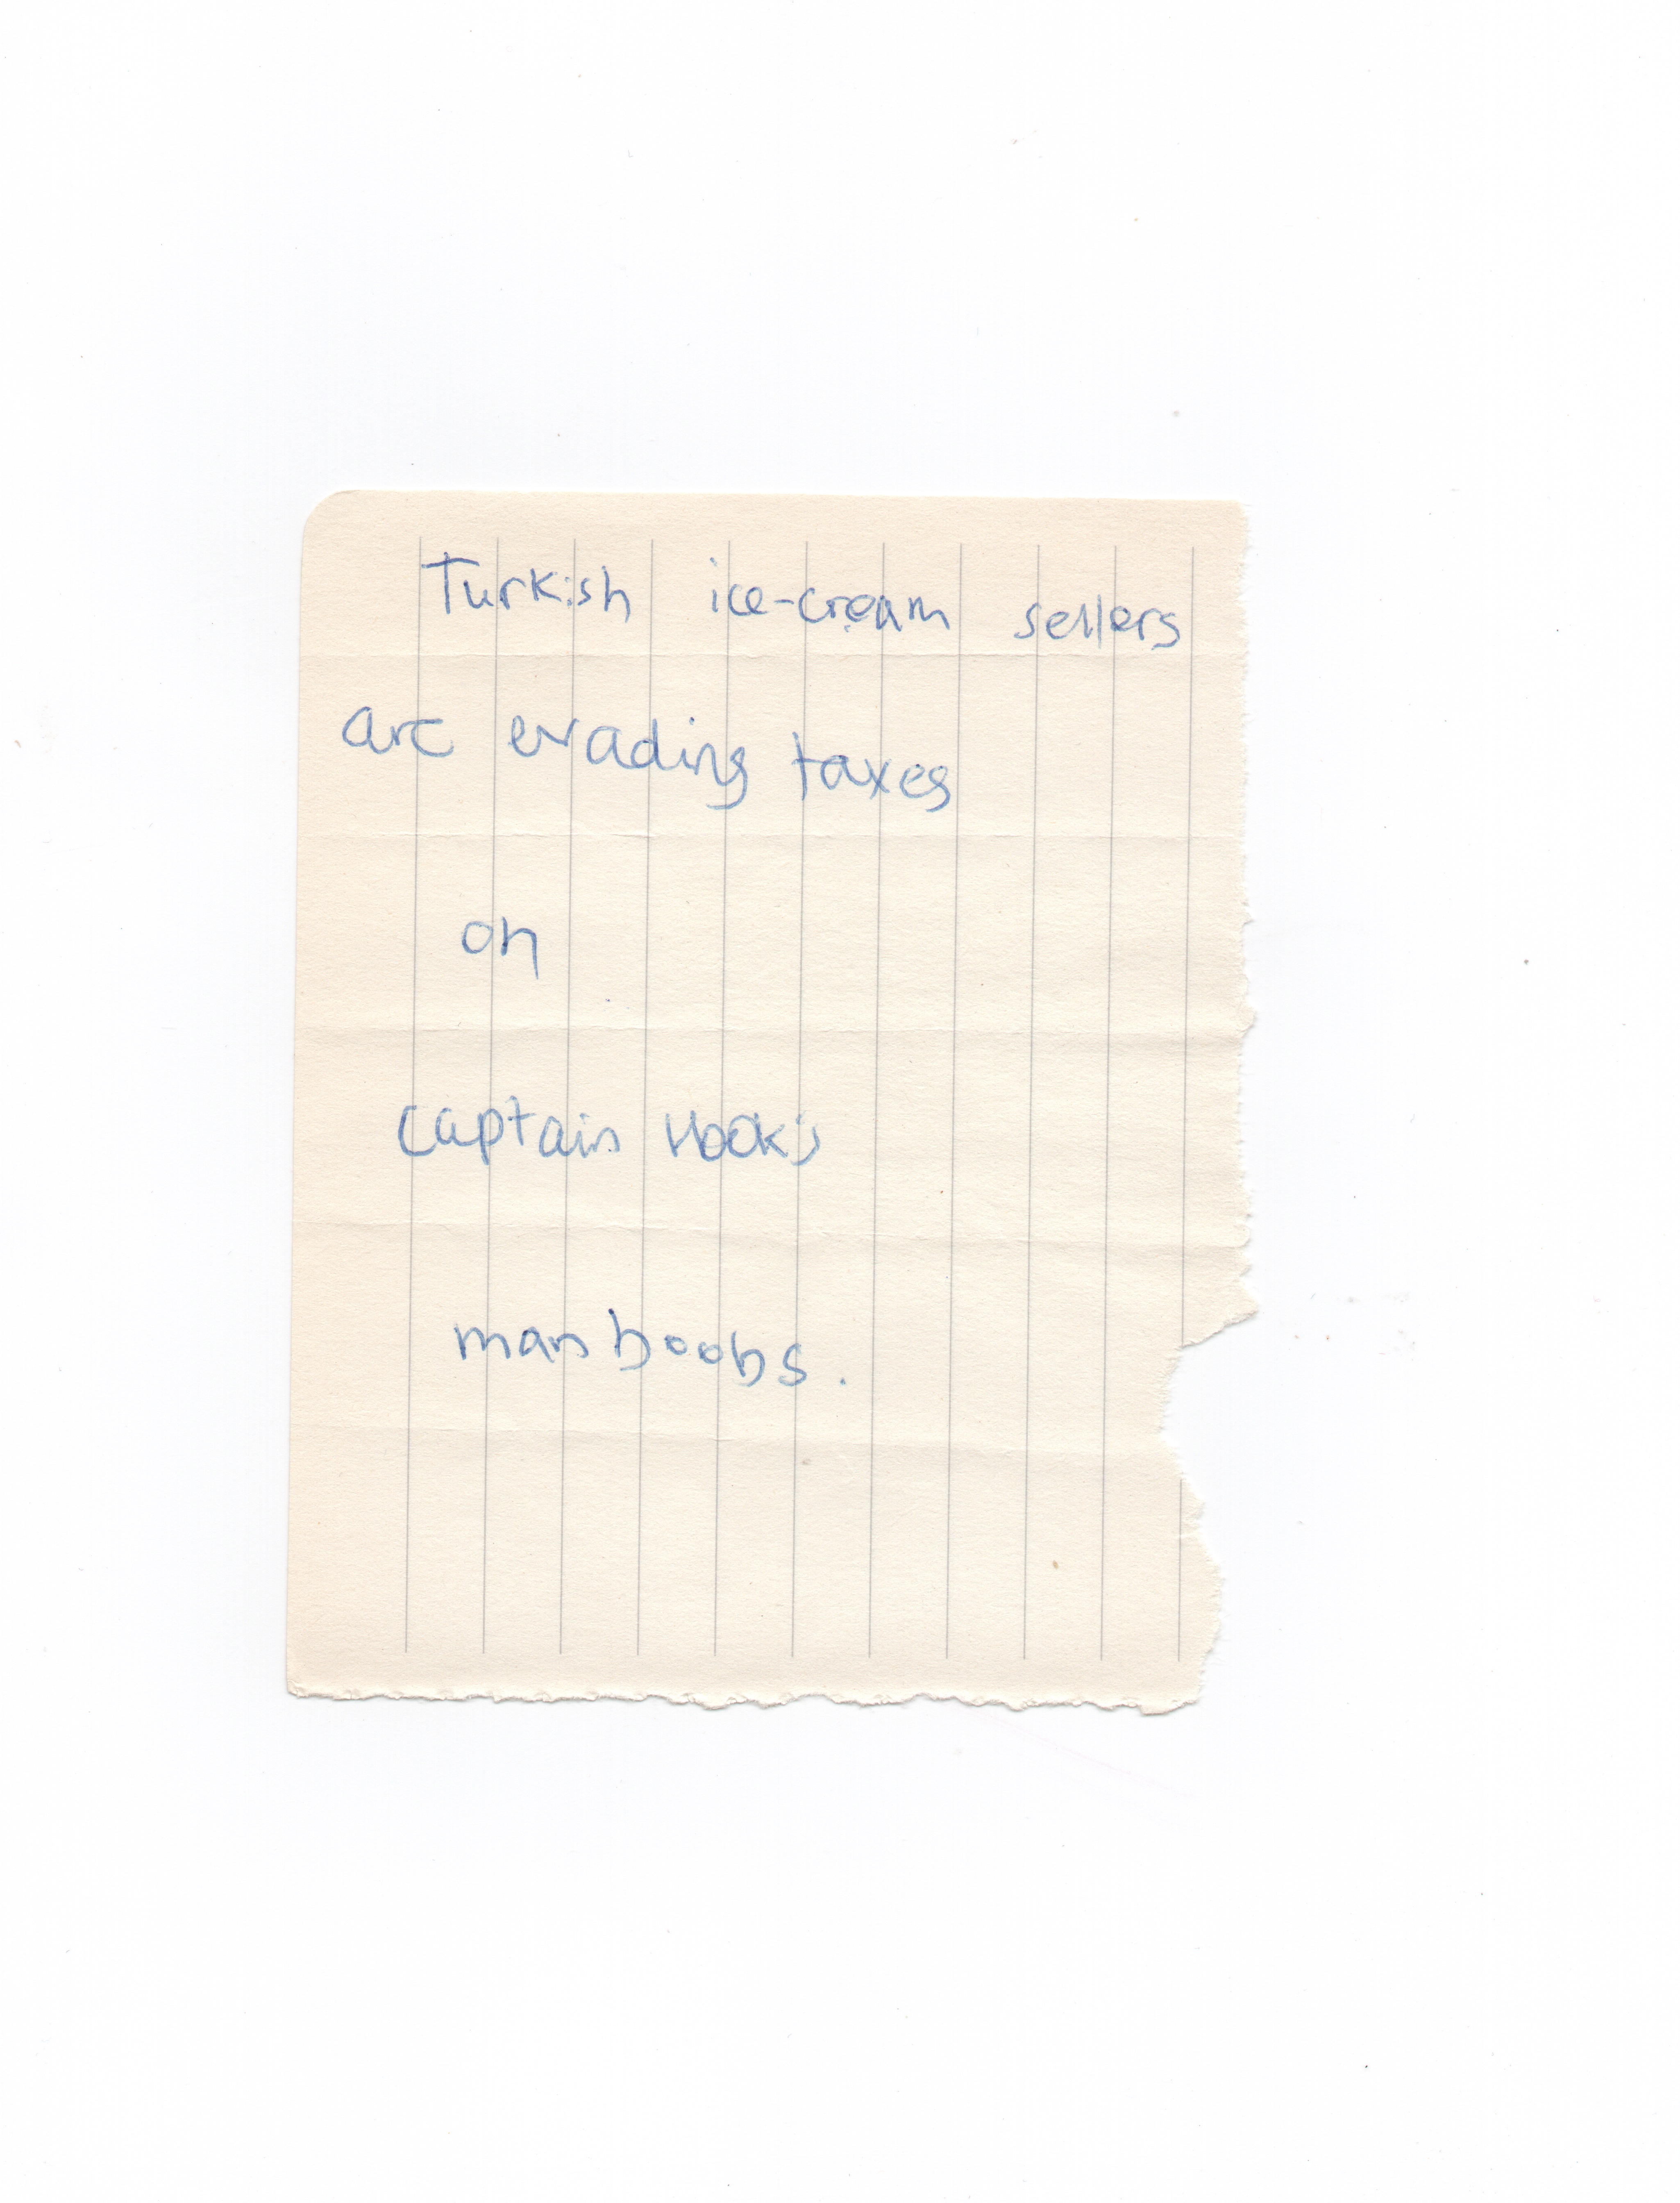 Turkish ice-cream sellers
are evading taxes
on
Captain Hook's
manboobs.